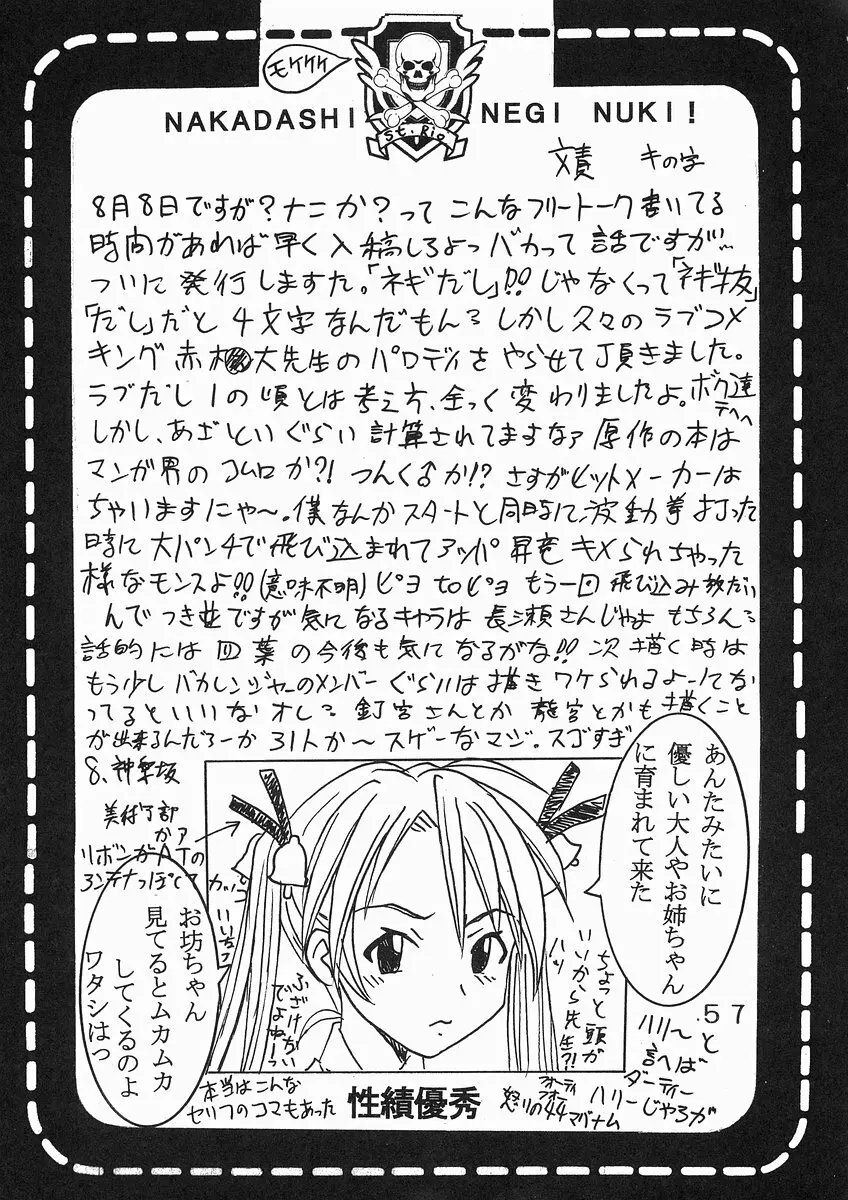 モケケケ
NAKADASHI NEGI NUKI!
St. Rio
文責 キの字
8月8日ですが?ナニか?って こんなフリートーク書いてる
時間があれば早く入稿しろよっバカって話ですが…
ついに発行しますた。「ネギだし」!!じゃなくって「ネギ抜」
「だし」だと4文字なんだもん しかし久々のラブコメ
キング 赤松大先生のパロディをやらせて頂きました。
ラブだし1の頃とは考え方、全っく変わりましたよ。ボク達
テヘヘ
しかし、あざといぐらい計算されてますなァ 原作の本は
マンガ界のコムロか?! つんく♂か!? さすがヒットメーカーは
ちゃいますにゃ〜。僕なんかスタートと同時に波動拳打った
時に大パンチで飛び込まれてアッパ昇竜キメられちゃった
様なモンスよ!!(意味不明)ピヨtoピヨ もう一回飛び込み放だい
んでつき並ですが気になるキャラは長瀬さんじゃよ もちろん
話的には四葉の今後も気になるがな!! 次描く時は
もう少しバカレンジャーのメンバーぐらいは描きワケられるよーにな
ってるといいなオレ 釘宮さんとか龍宮とかも描くこと
が出来るんだろーか 31人か〜スゲーなマジ。スゴすぎ
8、神楽坂
美術部
かァ
リボンがATの
アンテナっぽくて
カッコ
いいぢゃ
あんたみたいに
優しい大人やお姉ちゃん
に育まれて来た
お坊ちゃん
見てるとムカムカ
してくるのよ
ワタシはっ
ちょっと頭が
いいから先生?!
ハッ
ふざけない
でよねーっ
57
ハリー と
言へば
ダーティー
ハリーじゃろが
フォーティ
フォー
怒りの44マグナム
本当はこんな
セリフのコマもあった
性績優秀